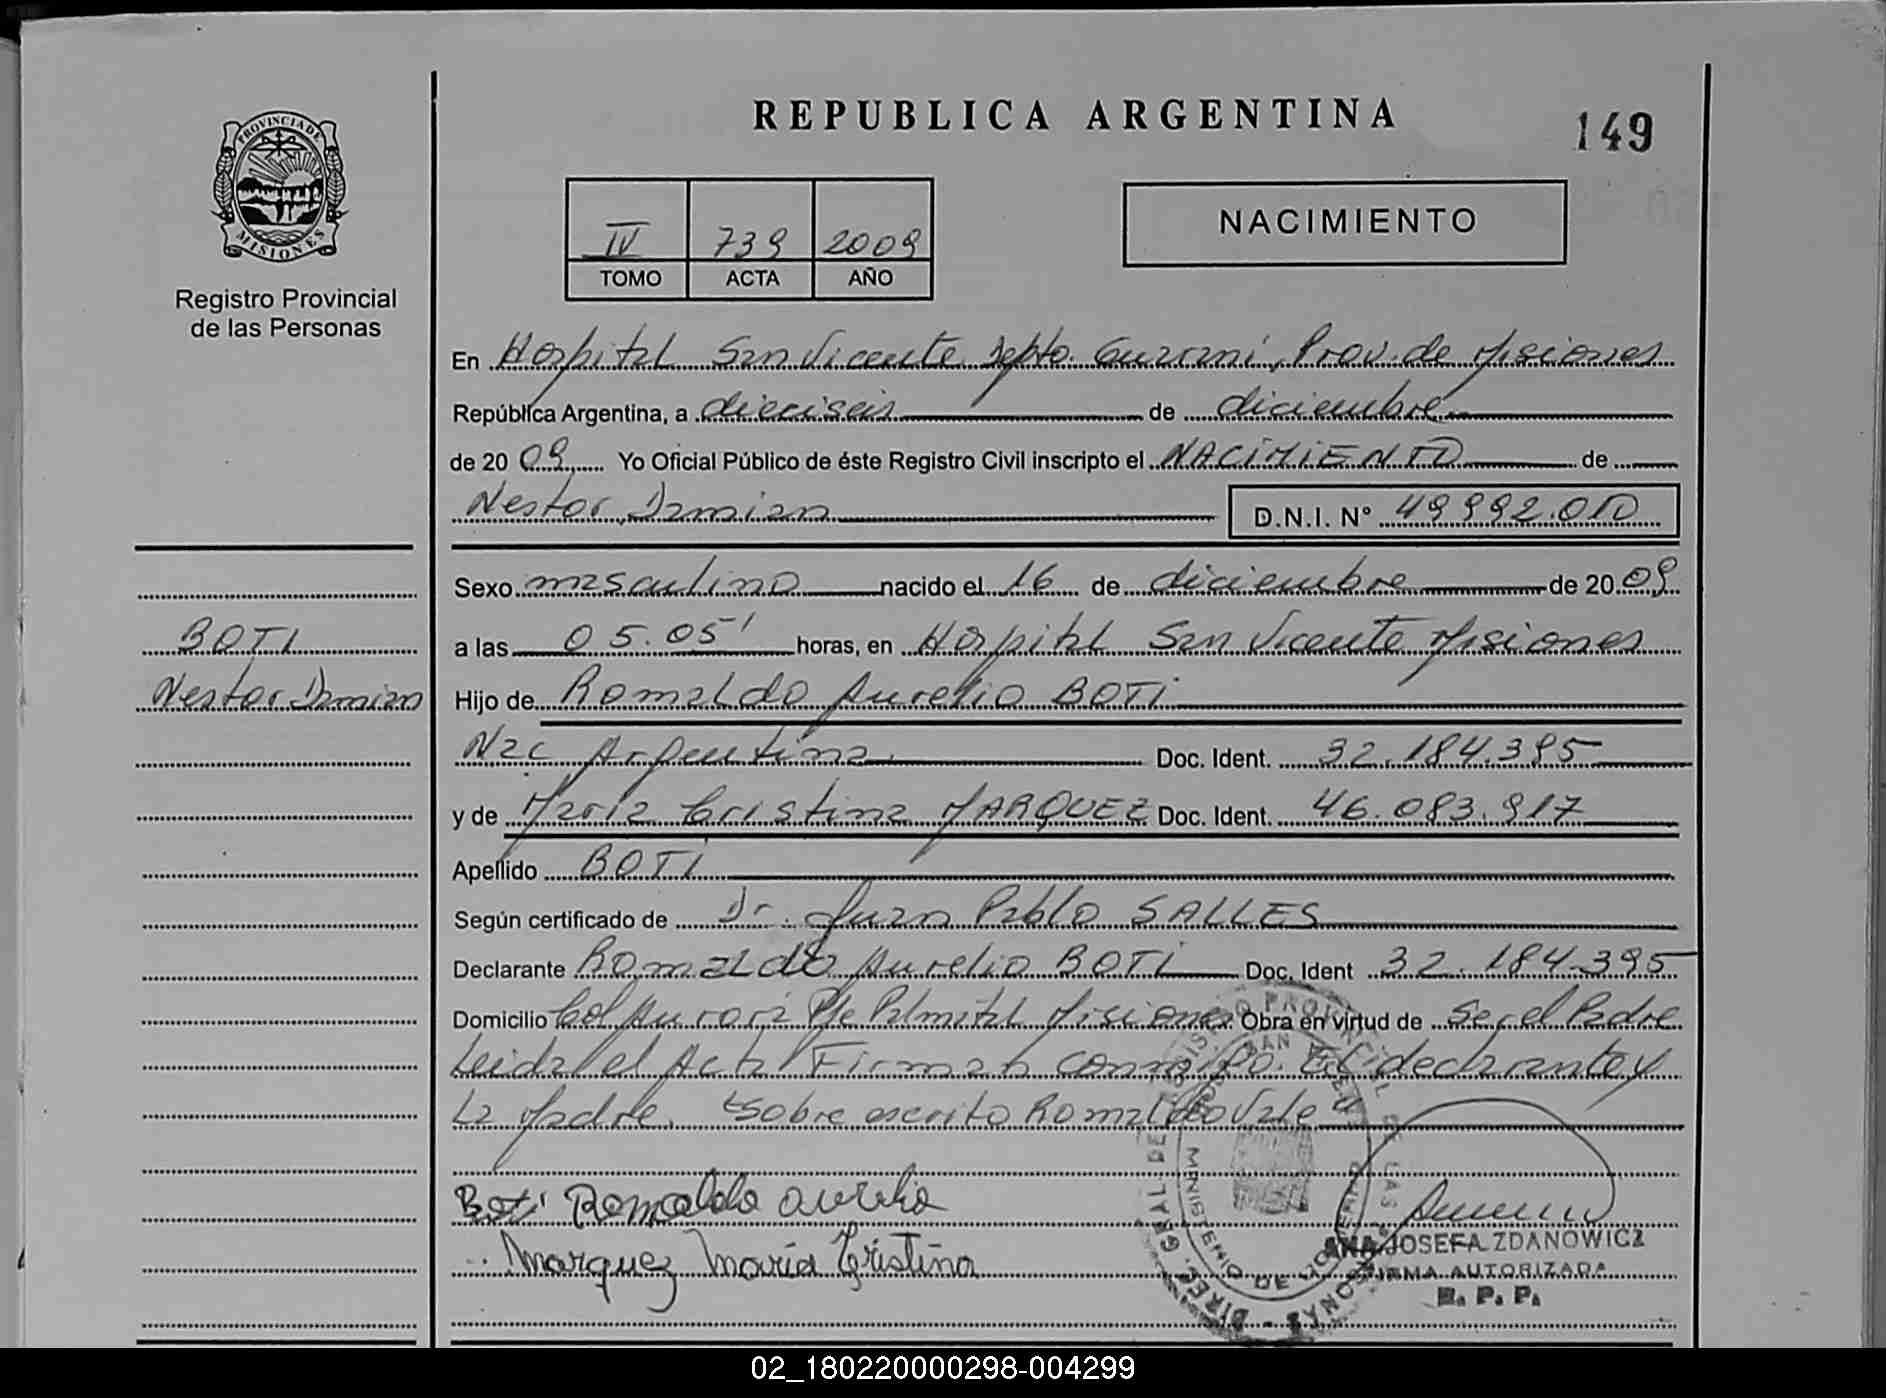 REPUBLICA ARGENTINA
149
PROVINCIA DE MISIONES
Registro Provincial
de las Personas
IV 739 2009
TOMO ACTA AÑO
NACIMIENTO
En Hospital San Vicente Depto. Guarani, Prov. de Misiones
República Argentina, a dieciseis de diciembre
de 20 09 Yo Oficial Público de éste Registro Civil inscripto el NACIMIENTO de
Nestor Damian D.N.I. Nº 49992.010
Sexo masculino nacido el 16 de diciembre de 20 09
BOTI
a las 05.05' horas, en Hospital San Vicente Misiones
Nestor Damian
Hijo de Romaldo Aurelio BOTI
Nac Argentina Doc. Ident. 32.184.395
y de Maria Cristina MARQUEZ Doc. Ident. 46.083.917
Apellido BOTI
Según certificado de Dr. Juan Pablo SALLES
Declarante Romaldo Aurelio BOTI Doc. Ident 32.184.395
Domicilio Col Aurora Pje Palmital Misiones Obra en virtud de Ser el Padre
Leida el Acta Firman conmigo. El declarante y
La Madre. Sobre escrito Romaldo Vale
Boti Romaldo aurelio
Marquez María Cristina
ANA JOSEFA ZDANOWICZ
FIRMA AUTORIZADA
R. P. P.
02_180220000298-004299